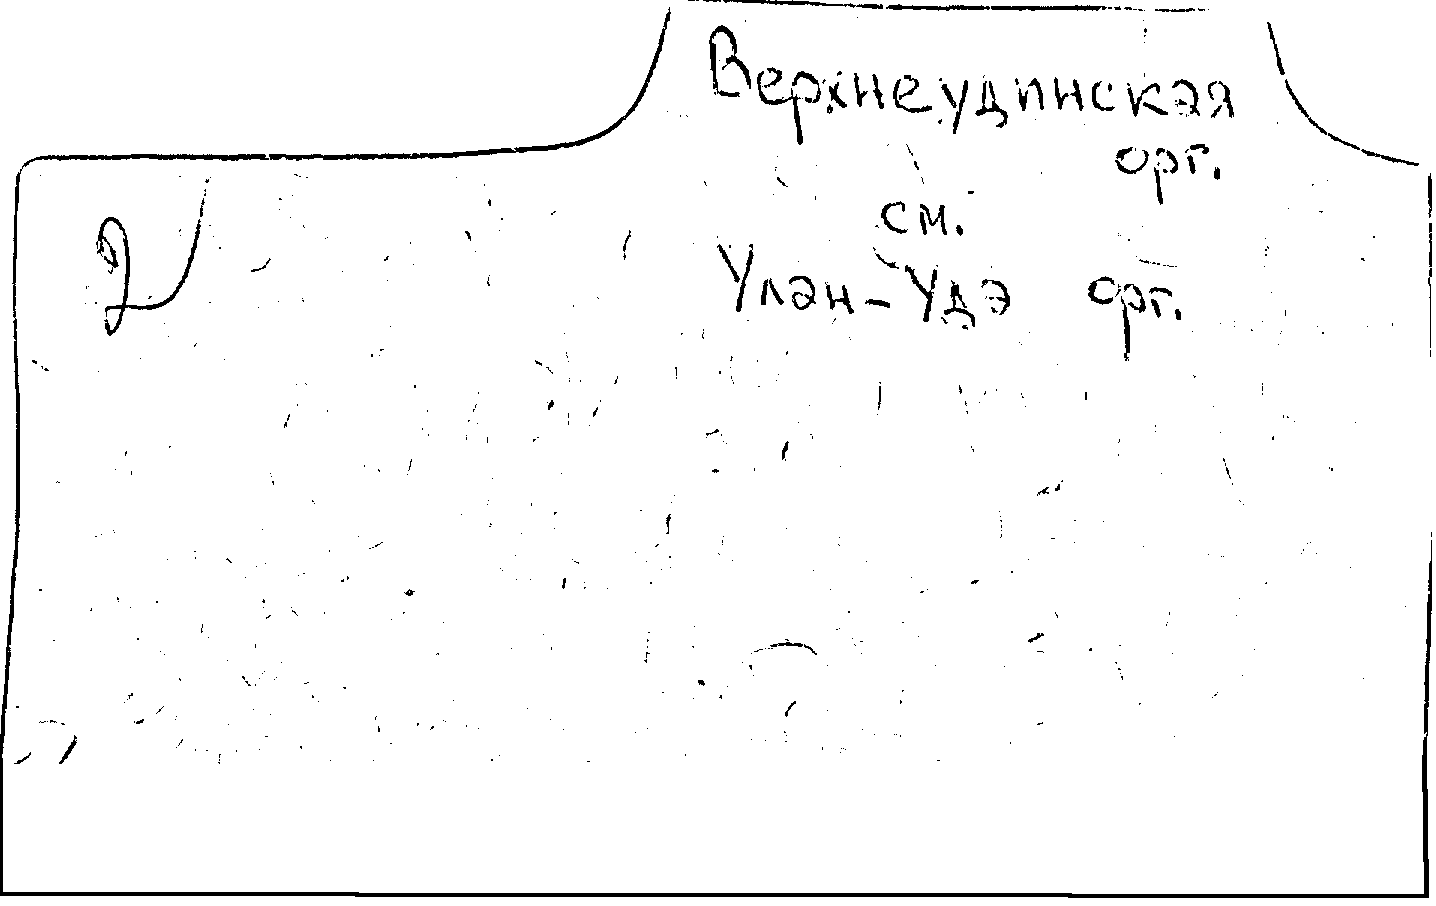 Верхнеудинская
орг.
см.
Улан-Удэ орг.
2